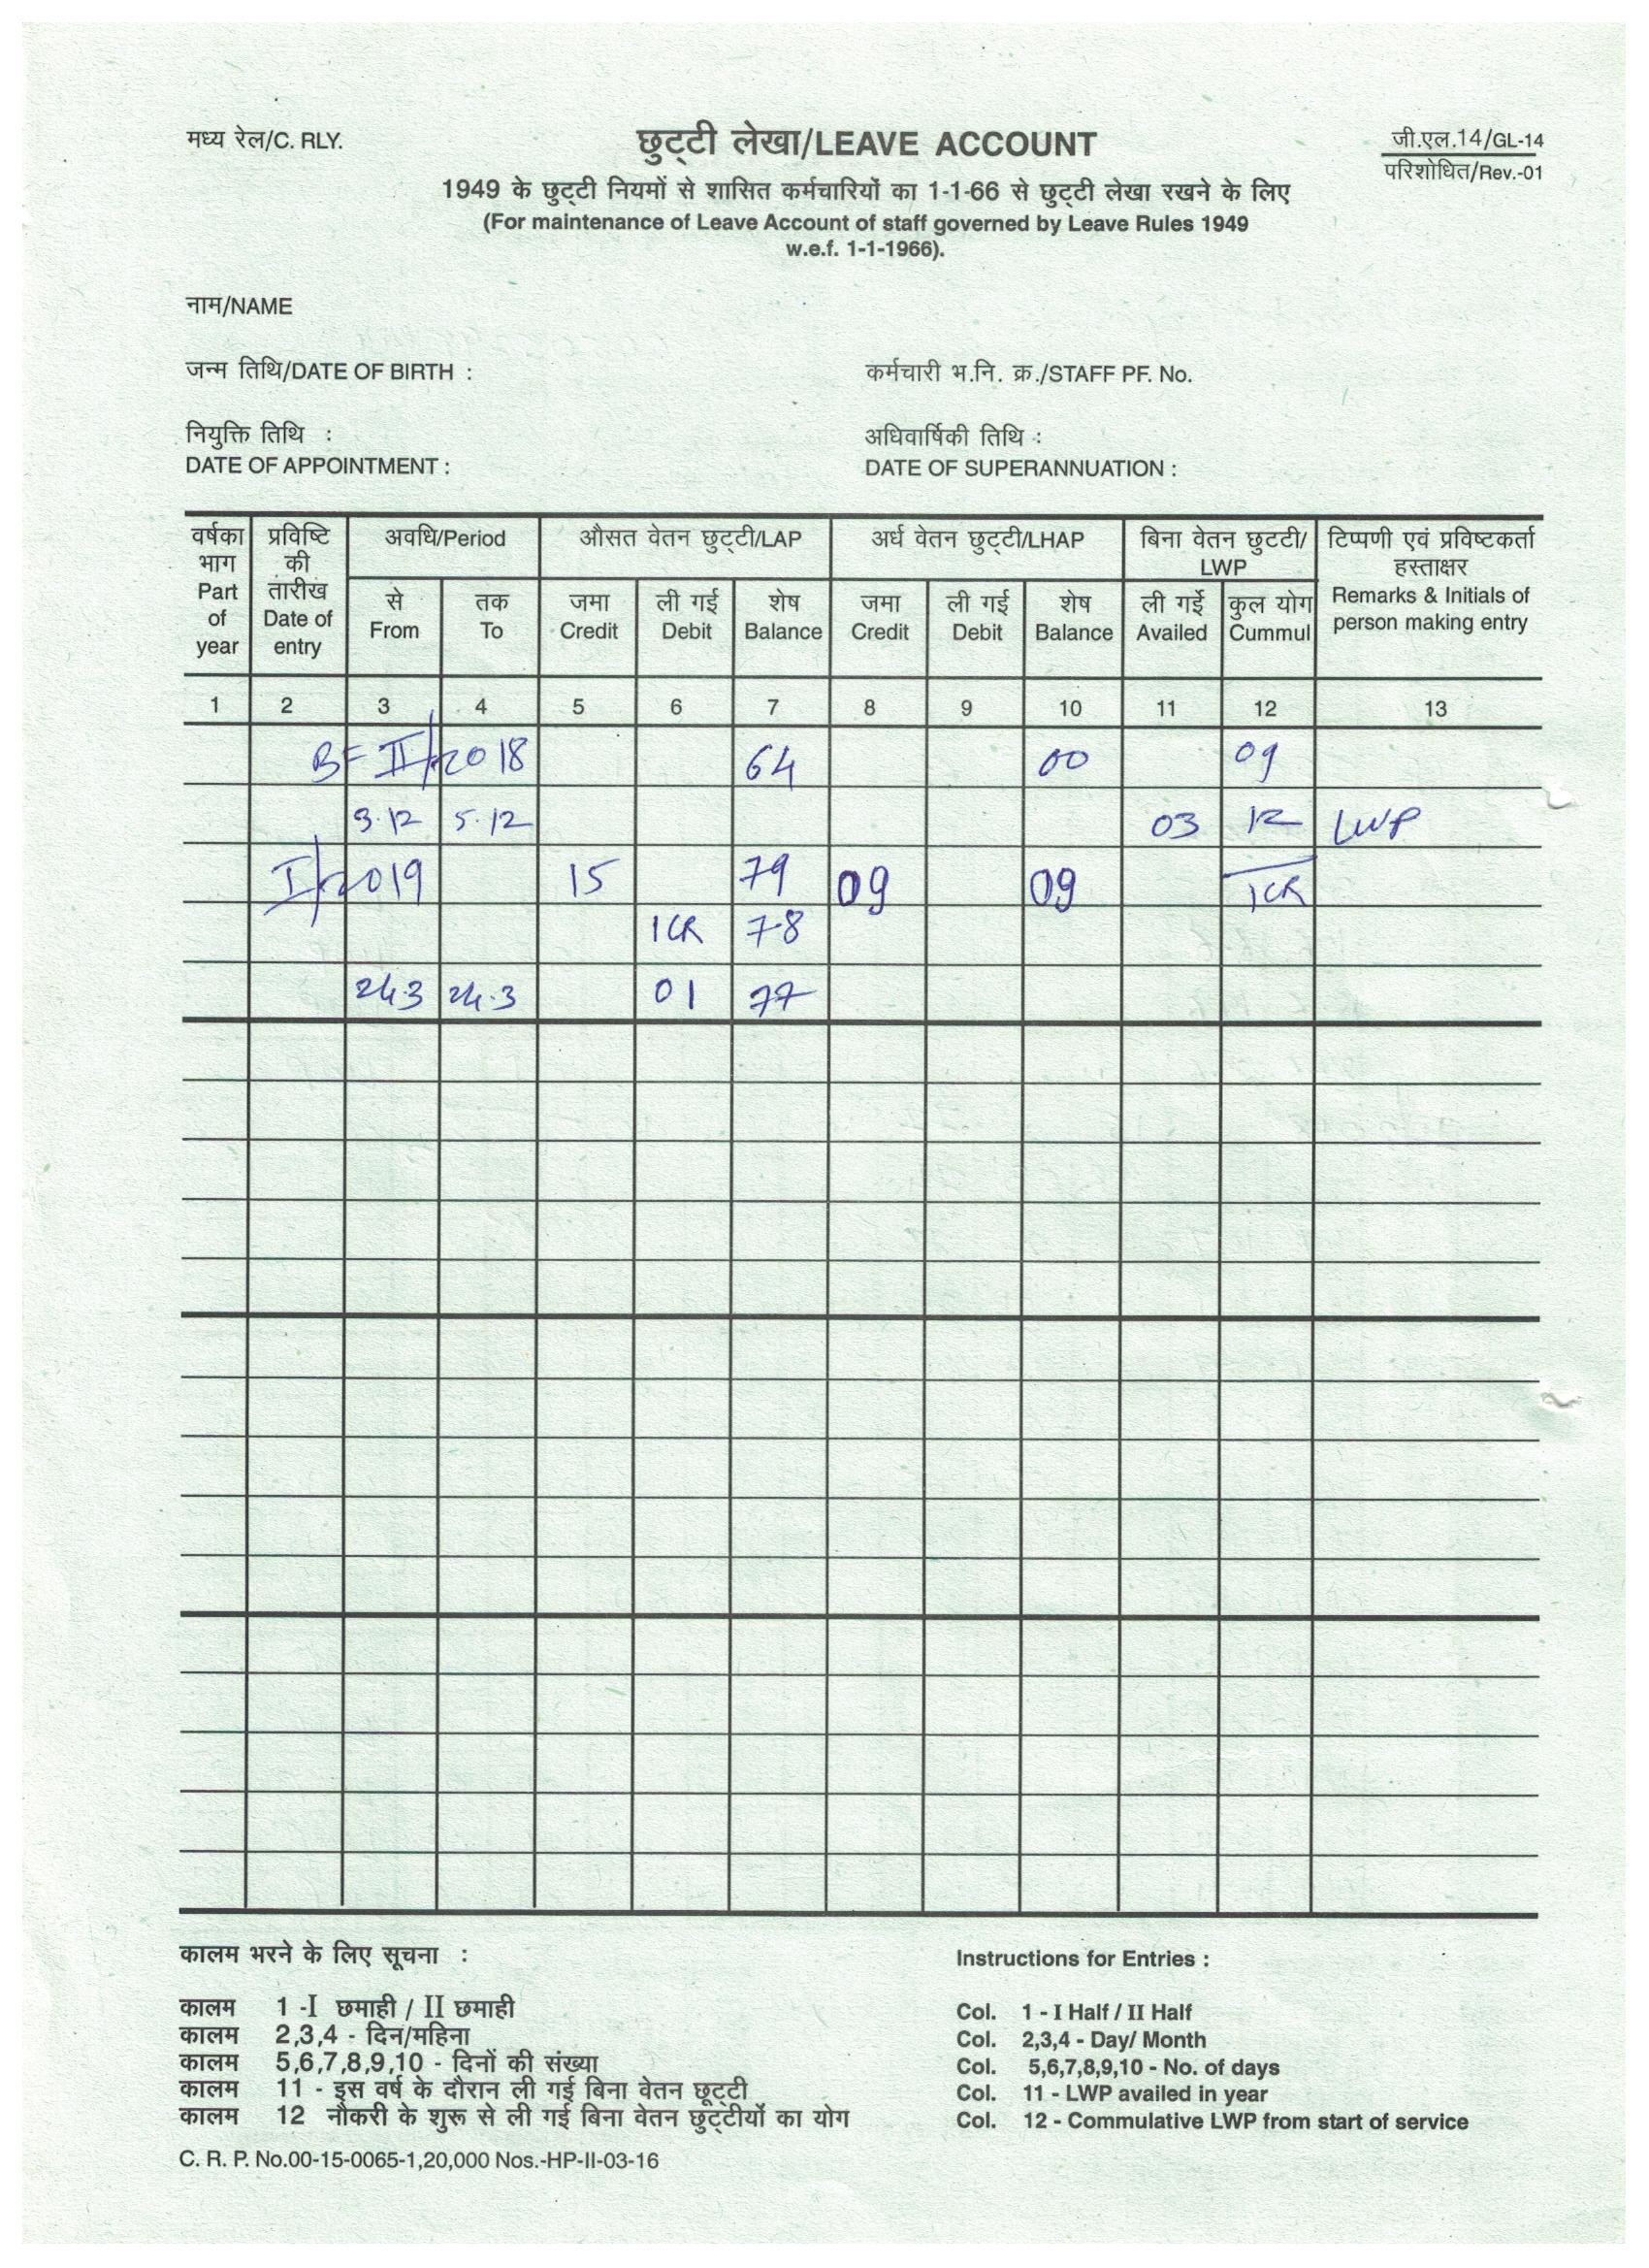 मध्य रेल/C. RLY.
छुट्टी लेखा/LEAVE ACCOUNT
जी.एल.14/GL-14
परिशोधित/Rev.-01
1949 के छुट्टी नियमों से शासित कर्मचारियों का 1-1-66 से छुट्टी लेखा रखने के लिए
(For maintenance of Leave Account of staff governed by Leave Rules 1949
w.e.f. 1-1-1966).
नाम/NAME
जन्म तिथि/DATE OF BIRTH :
कर्मचारी भ.नि. क्र./STAFF PF. No.
नियुक्ति तिथि :
DATE OF APPOINTMENT :
अधिवार्षिकी तिथि :
DATE OF SUPERANNUATION :
वर्षका भाग Part of year
प्रविष्टि की तारीख Date of entry
अवधि/Period
औसत वेतन छुट्टी/LAP
अर्ध वेतन छुट्टी/LHAP
बिना वेतन छुटटी/ LWP
टिप्पणी एवं प्रविष्टकर्ता हस्ताक्षर Remarks & Initials of person making entry
से From
तक To
जमा Credit
ली गई Debit
शेष Balance
जमा Credit
ली गई Debit
शेष Balance
ली गईे Availed
कुल योग Cummul
1 2 3 4 5 6 7 8 9 10 11 12 13
BF II/2018 64 00 09
3.12 5.12 03 12 LWP
I/2019 15 79 09 09 1CR
1CR 78
24.3 24.3 01 77
कालम भरने के लिए सूचना :
कालम 1 -I छमाही / II छमाही
कालम 2,3,4 - दिन/महिना
कालम 5,6,7,8,9,10 - दिनों की संख्या
कालम 11 - इस वर्ष के दौरान ली गई बिना वेतन छूट्टी
कालम 12 नौकरी के शुरू से ली गई बिना वेतन छुट्टीयों का योग
Instructions for Entries :
Col. 1 - I Half / II Half
Col. 2,3,4 - Day/ Month
Col. 5,6,7,8,9,10 - No. of days
Col. 11 - LWP availed in year
Col. 12 - Commulative LWP from start of service
C. R. P. No.00-15-0065-1,20,000 Nos.-HP-II-03-16